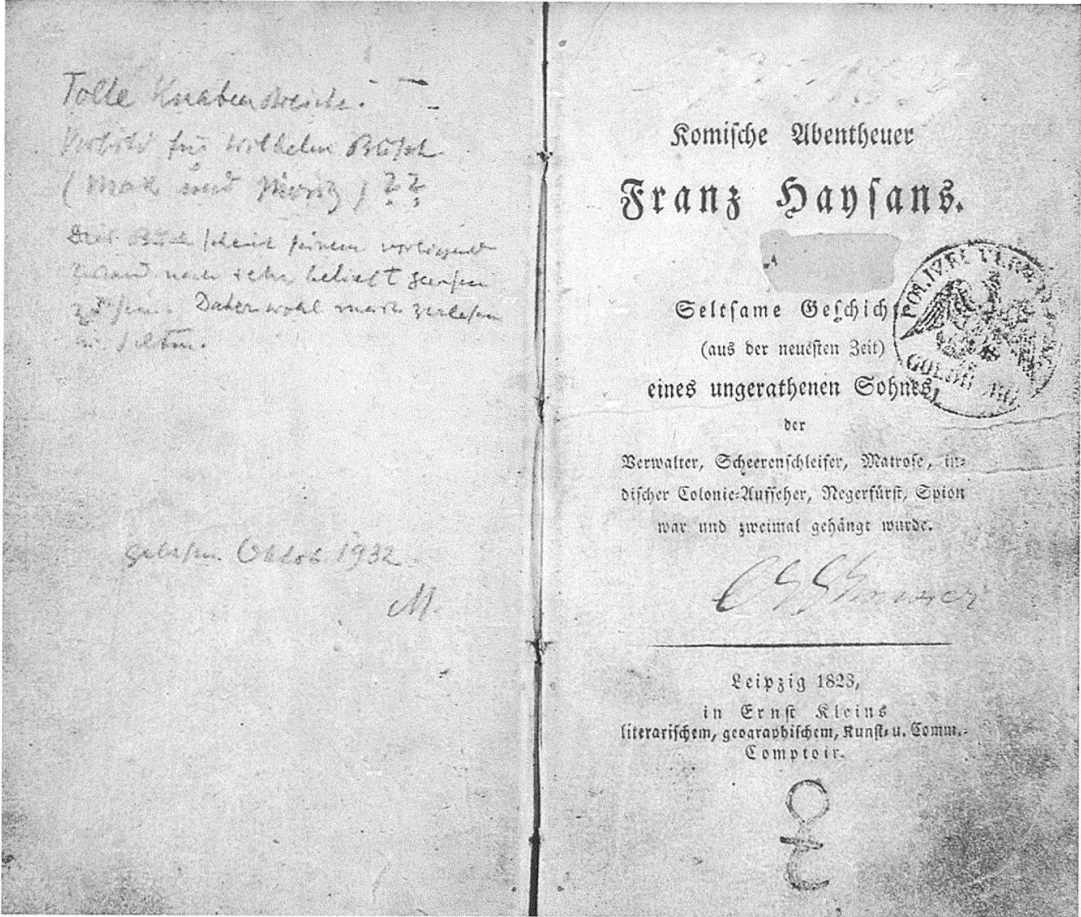 Tolle Knabenstreiche.
Vorbild für Wilhelm Busch
(Max und Moritz) ??
Dies Buch scheint seinem
nach sehr beliebt gewesen
zu sein. Daher wohl meist zerlesen
u. selten.
gelesen Oktob. 1932
M.
Komische Abentheuer
Franz Haysans.
Seltsame Geschich
(aus der neuesten Zeit)
eines ungerathenen Sohnes,
der
Verwalter, Scheerenschleifer, Matrose, in-
discher Colonie-Aufseher, Negerfürst, Spion
war und zweimal gehängt wurde.
POLIZEI VER
Leipzig 1823,
in Ernst Kleins
literarischem, geographischem, Kunst- u. Comm.-
Comptoir.